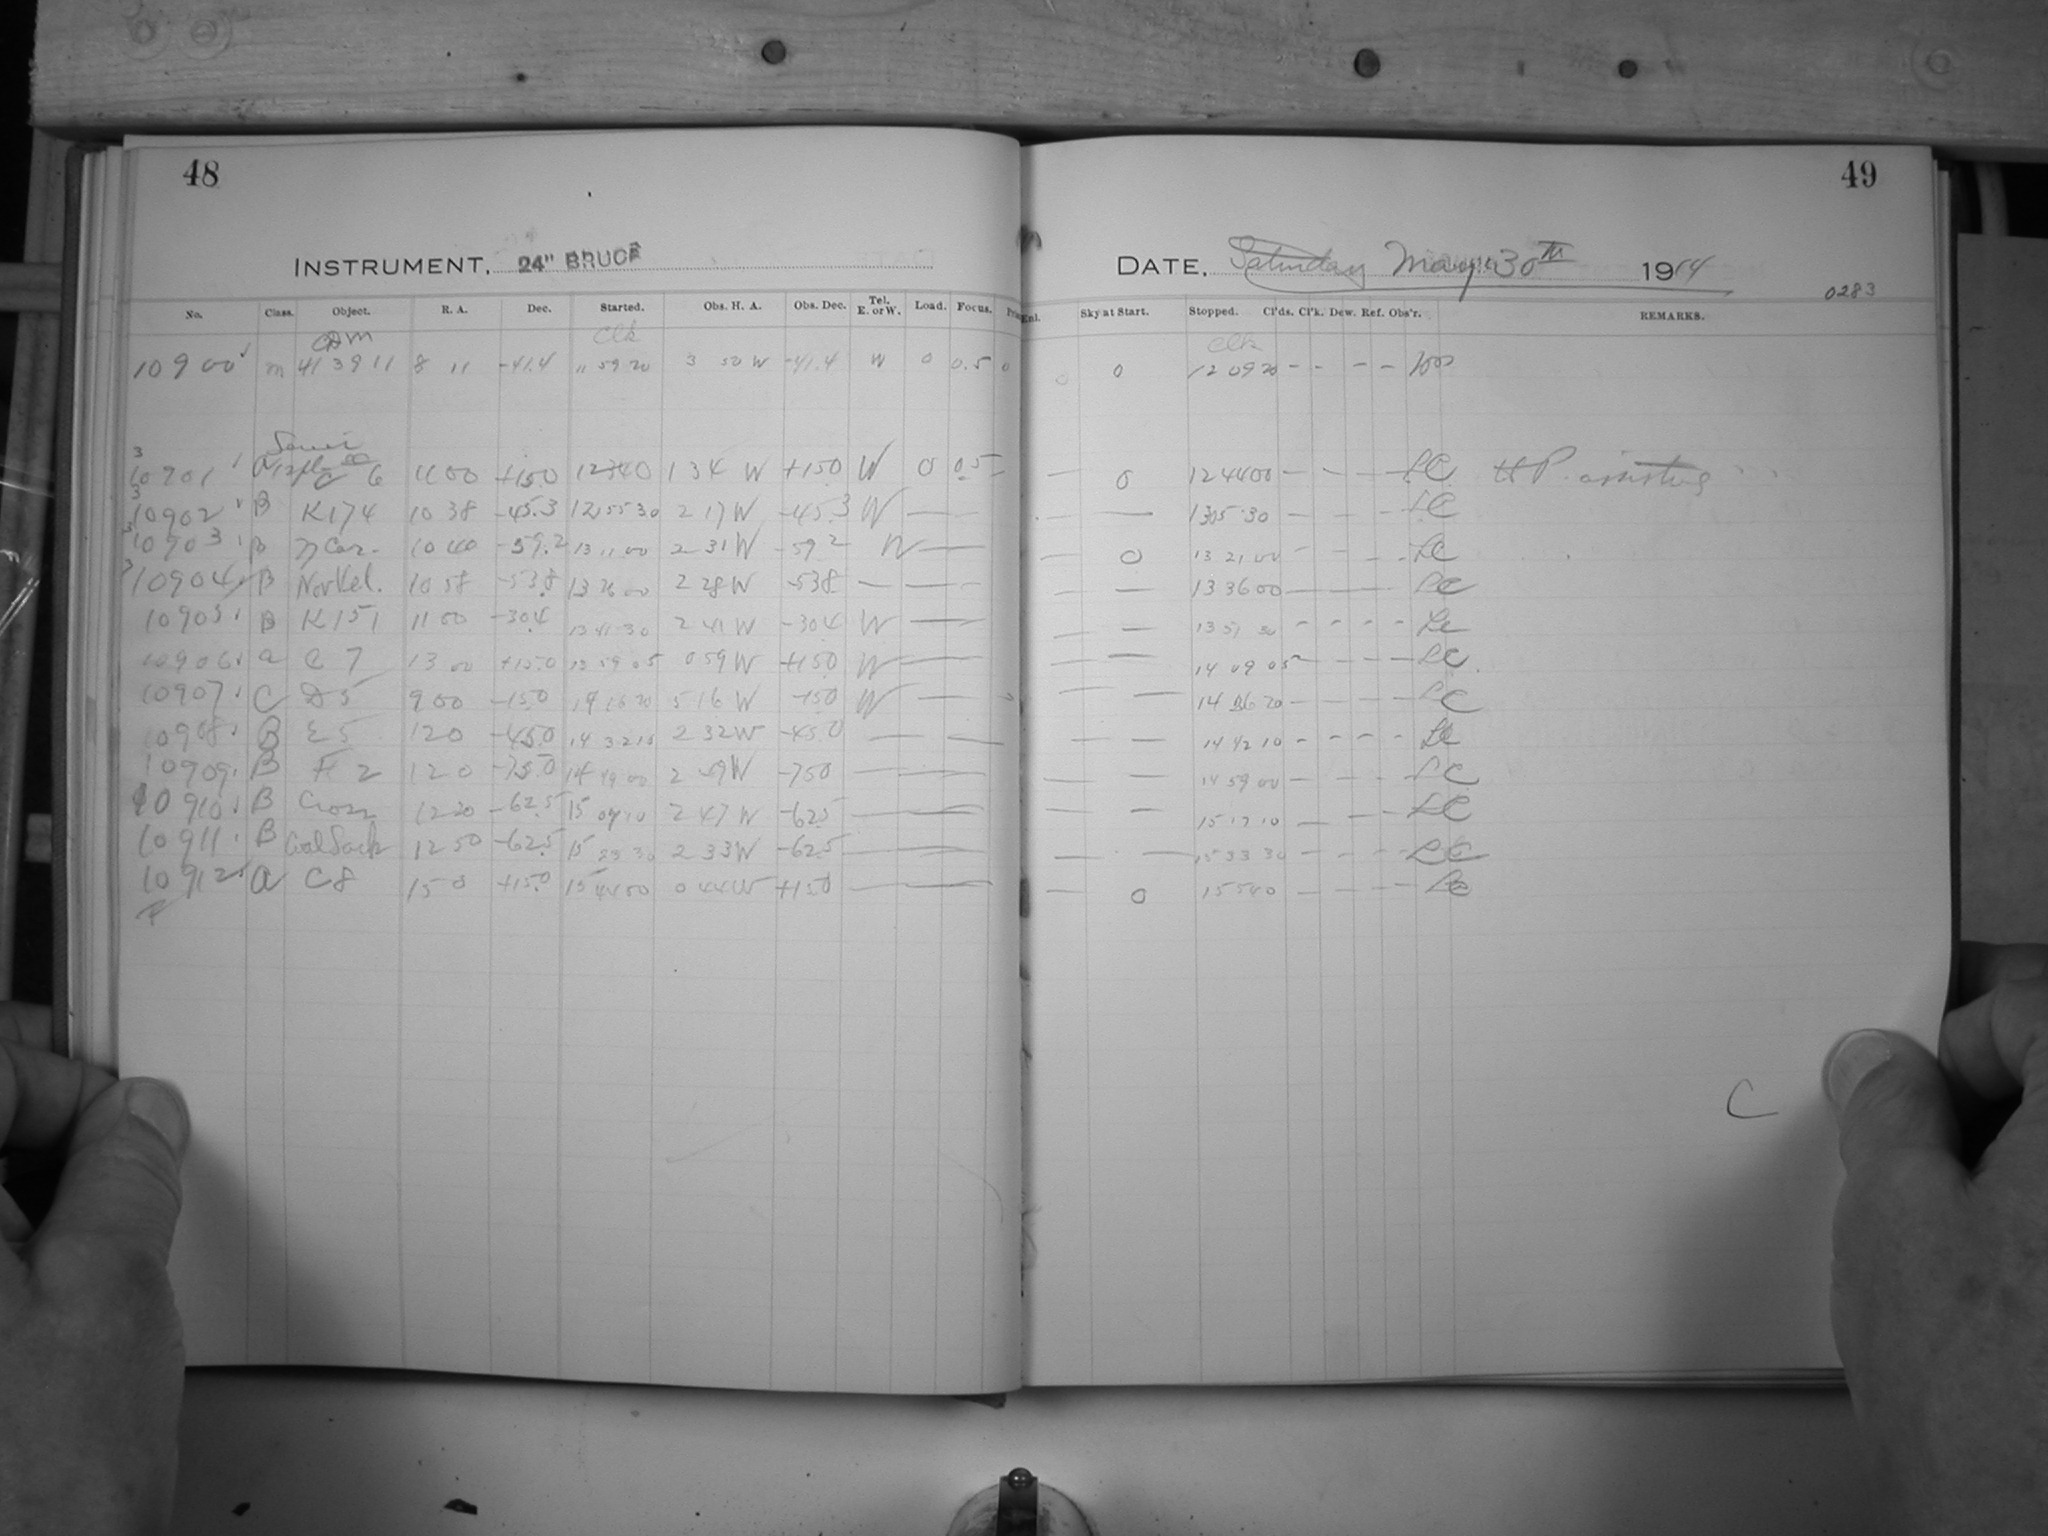 48
INSTRUMENT, 24" BRUCE
No. Class. Object. R. A. Dec. Started. Obs. H. A. Obs. Dec. Tel. E. or W. Load. Focus.
Clk
10900 m 413911 8 11 -41.4 11 59 20 3 50 W -41.4 W 0 0.5 0
C 6 11 00 +15.0 1 34 W +15.0 W 0 0.5
10902 B K174 10 38 -45.3 12 55 30 2 17 W -45.3 W —
10903 B η Car. 10 40 -59.2 13 11 00 2 31 W -59 2 W —
10904 B Nov Vel. 10 58 -53.8 13 26 00 2 28 W -538 — —
10905 B K151 11 00 -304 13 41 30 2 41 W -304 W —
10906 a C 7 13 00 +15.0 13 59 05 0 59 W +150 W —
10907 C D 5 9 00 -150 14 16 20 5 16 W -150 W —
10908 B E 5 12 0 -45.0 14 32 10 2 32 W -45.0 — —
10909 B F 2 12 0 -75.0 14 49 00 2 49 W -750 — —
10910 B Cross 12 20 -62.5 15 07 10 2 47 W -625 — —
10911 B Coal Sack 12 50 -62.5 15 23 30 2 33 W -625 — —
10912 a C8 15 0 +15.0 15 44 50 0 44 W +150 — —
49
DATE, Saturday May 30th 1914
0283
Enl. Sky at Start. Stopped. Cl'ds. Cl'k. Dew. Ref. Obs'r. REMARKS.
Clk
0 0 12 09 20 - - - -
— 0 12 44 00 - - - - LC HP. assisting
— 13 05 30 - - - LC
0 13 21 00 - - - LC
— — 13 36 00 - - - LC
— — 13 51 30 - - - - LC
— — 14 09 05 - - - - LC
— — 14 26 20 - - - - LC
— — 14 42 10 - - - - LC
— — 14 59 00 - - - - LC
— — 15 17 10 - - - - LC
— — 15 33 30 - - - - LC
— 0 15 54 0 - - - - LC
C